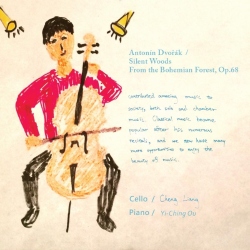 Antonín Dvořák /
Silent Woods
From the Bohemian Forest, Op.68
contributed amazing music to
society, both solo and chamber
music. Classical music became
popular after his numerous
recitals, and we now have many
more opportunities to enjoy the
beauty of music.
Cello / Chena Liang
Piano / Yi-Ching Ou